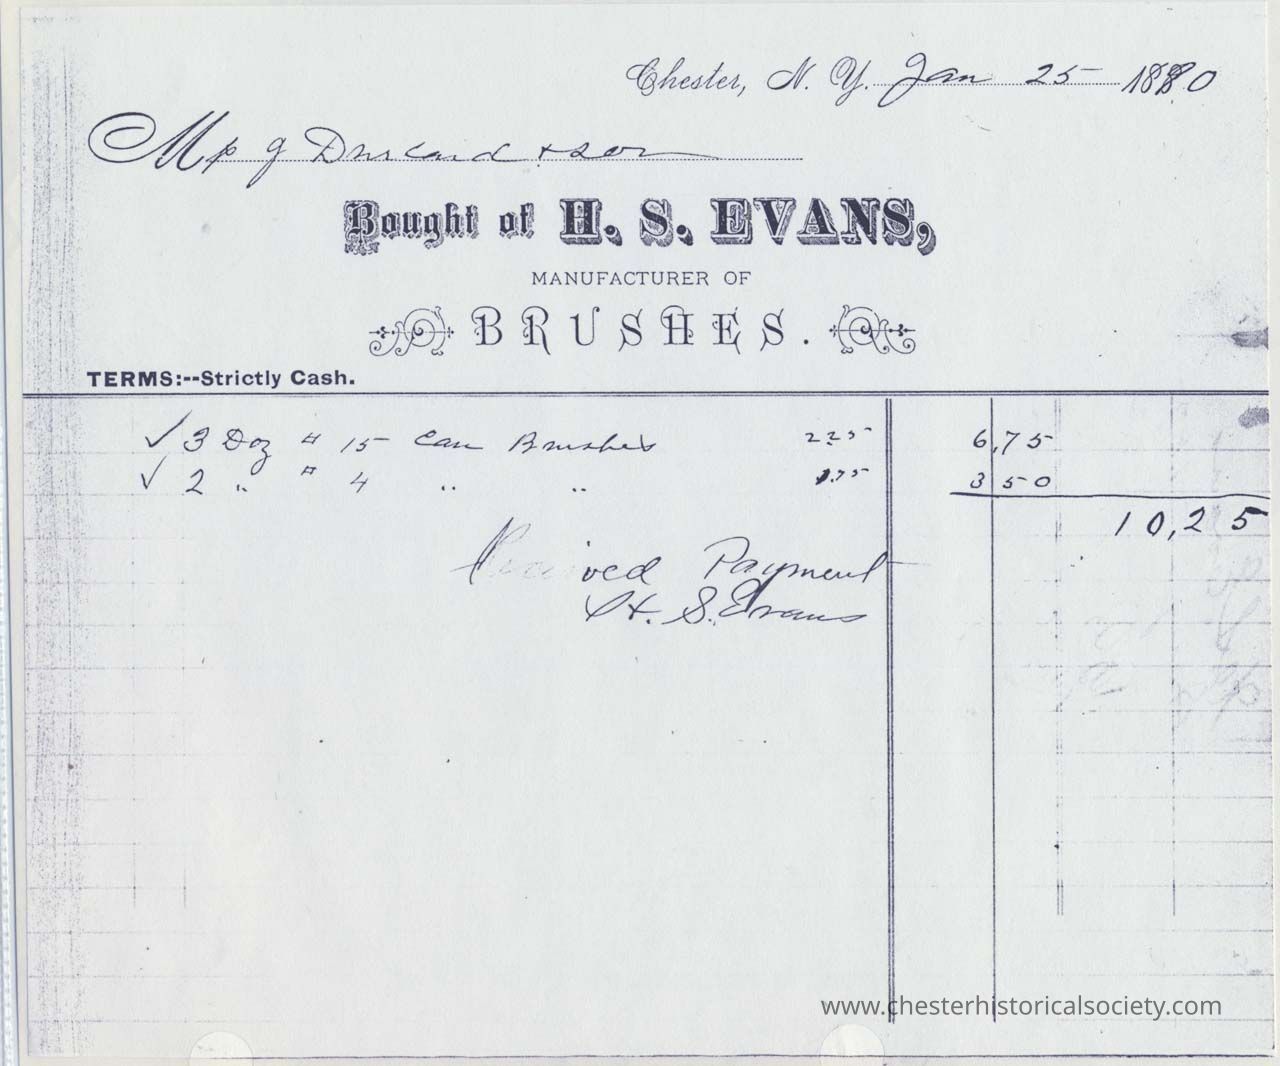 Chester, N. Y. Jan 25 1880
M J Durland & son
Bought of H. S. EVANS,
MANUFACTURER OF
BRUSHES.
TERMS:--Strictly Cash.
✓ 3 Doz # 15 Can Brushes 2 25 6,75
✓ 2 " # 4 " " 1.75 3 50
10,25
Received Payment
H. S. Evans
www.chesterhistoricalsociety.com